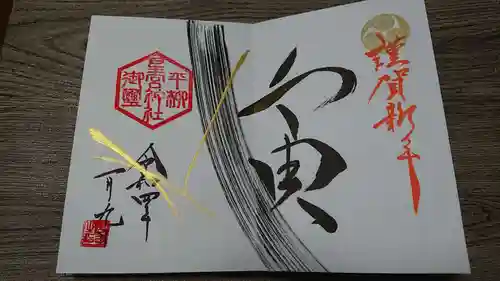 謹賀新年
寅
平柳
星宮神社
令和四年
一月九